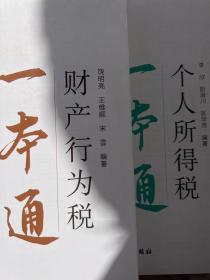 财产行为税
一本通
饶明亮 王维顺 宋雪 编著
个人所得税
一本通
编著